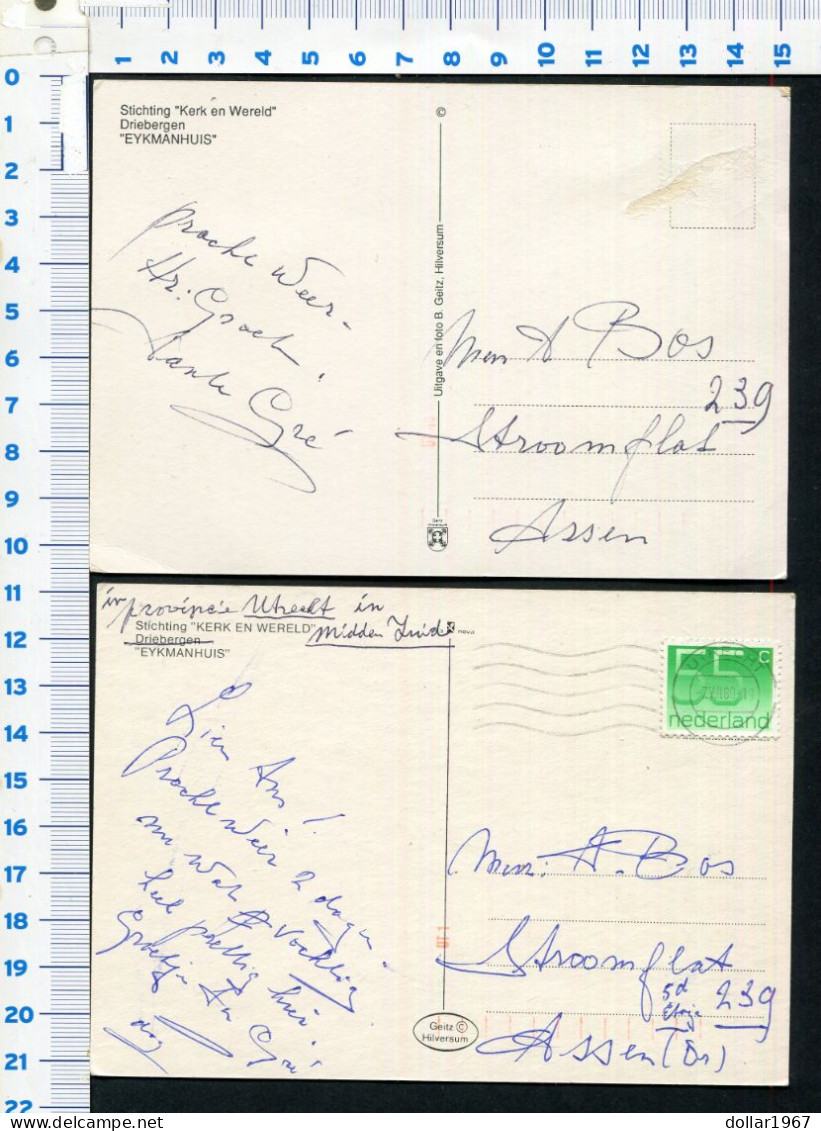 1 2 3 4 5 6 7 8 9 10 11 12 13 14 15
0
1
2
3
4
5
6
7
8
9
10
11
12
13
14
15
16
17
18
19
20
21
22
Stichting "Kerk en Wereld"
Driebergen
"EYKMANHUIS"
prachk Weer-
Hr. Groet.
tante Gré
©
Uitgave en foto B. Geitz, Hilversum
Geitz
Hilversum
Mevr A Bos
239
Stroomflat
Assen
in provincie Utrecht in
Midden Zuid
Stichting "KERK EN WERELD"
Driebergen
"EYKMANHUIS"
nova
Lieve Ans!
Prachk Weer 2 dagen
nu wat vochtig
heel prettig hier!
Groetjes Tn Gré
dag
55 c
nederland
Mevr: A. Bos
Stroomflat
5d
Etage 239
Assen (Dr)
Geitz ©
Hilversum
dollar1967